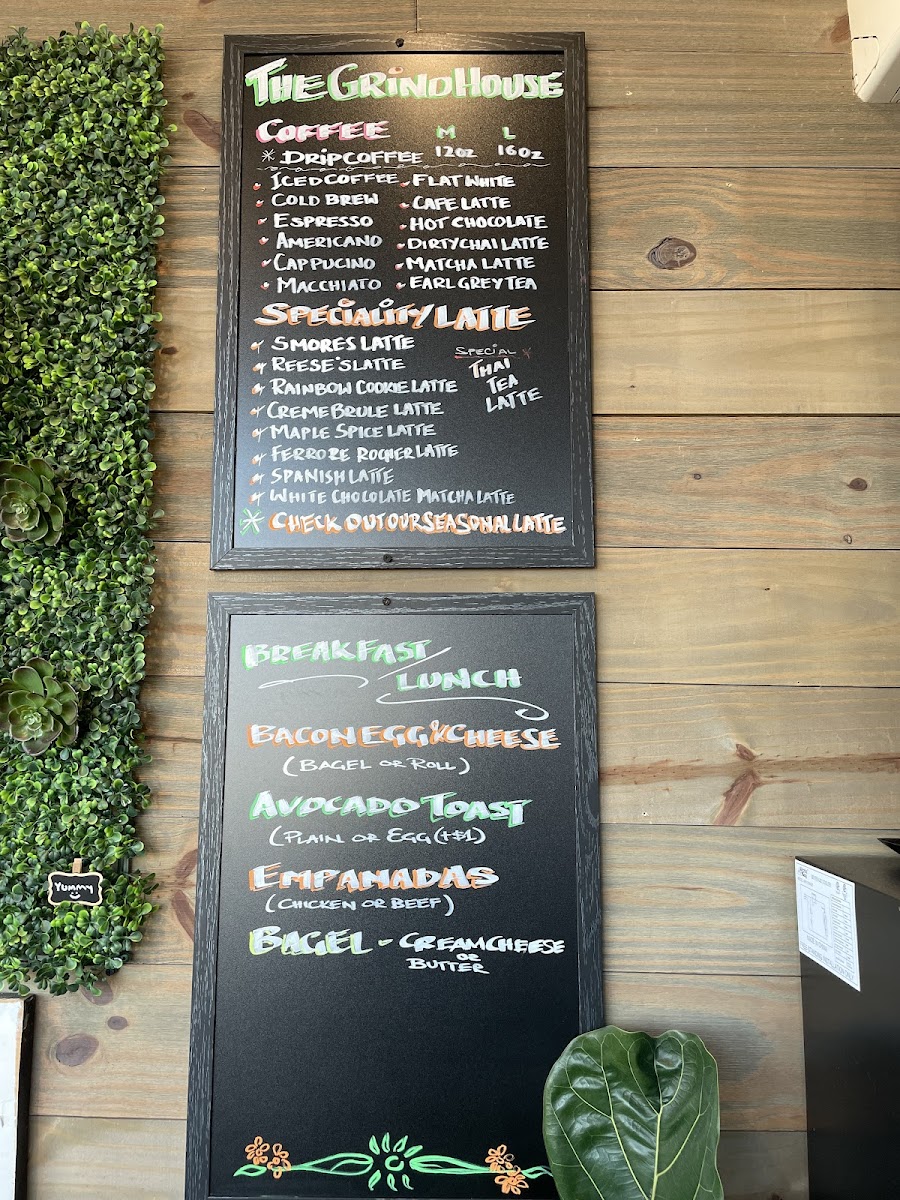 THE GRIND HOUSE
COFFEE M L
* DRIP COFFEE 12oz 16oz
ICED COFFEE
COLD BREW
ESPRESSO
AMERICANO
CAPPUCINO
MACCHIATO
FLAT WHITE
CAFE LATTE
HOT CHOCOLATE
DIRTY CHAI LATTE
MATCHA LATTE
EARL GREY TEA
SPECIALITY LATTE
SMORES LATTE
REESE'S LATTE
RAINBOW COOKIE LATTE
CREME BRULE LATTE
MAPLE SPICE LATTE
FERRORE ROCHER LATTE
SPANISH LATTE
WHITE CHOCOLATE MATCHA LATTE
SPECIAL
THAI
TEA
LATTE
* CHECK OUT OUR SEASONAL LATTE
BREAKFAST/
LUNCH
BACON EGG & CHEESE
(BAGEL OR ROLL)
AVOCADO TOAST
(PLAIN OR EGG (+$1)
EMPANADAS
(CHICKEN OR BEEF)
BAGEL - CREAM CHEESE
OR
BUTTER
YUMMY